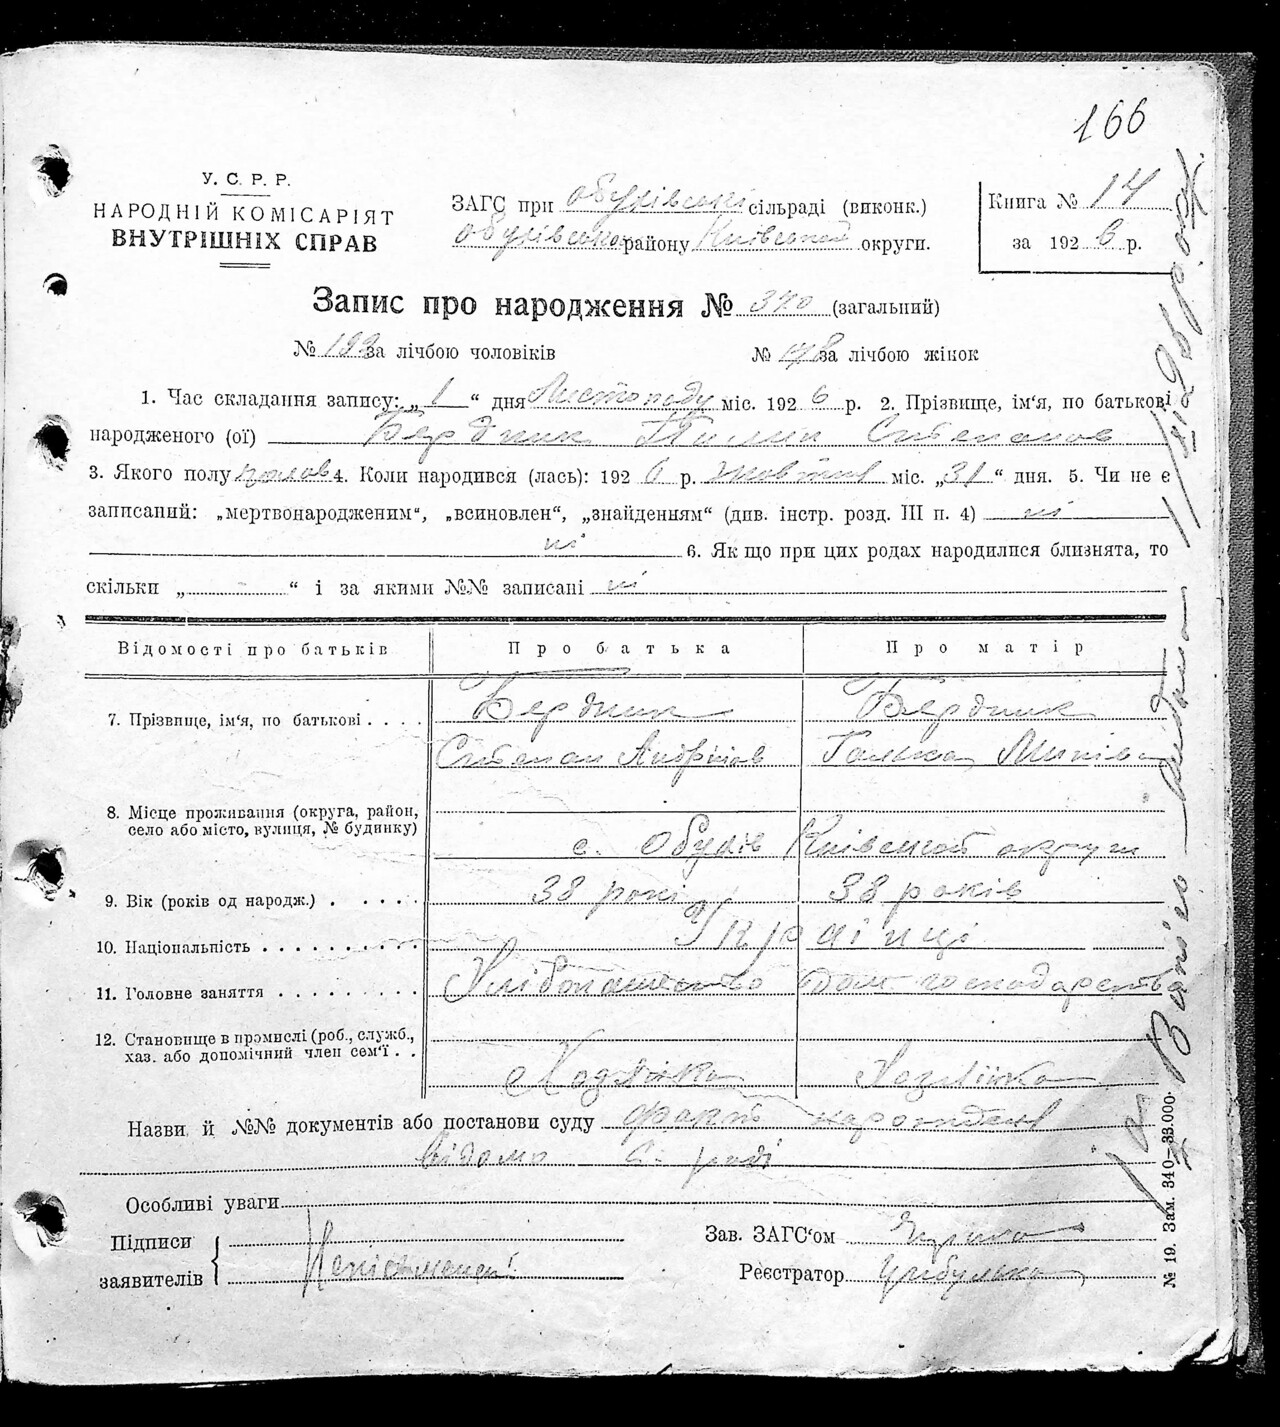 166
У. С. Р. Р.
НАРОДНІЙ КОМІСАРІЯТ
ВНУТРІШНІХ СПРАВ
ЗАГС при Обухівські сільраді (виконк.)
Обухівсько району Київської округи.
Книга № 14
за 1926 р.
Запис про народження № 370 (загальний)
№ за лічбою чоловіків
№ 178 за лічбою жінок
1. Час складання запису: „ 1 “ дня Листопаду міс. 1926 р. 2. Прізвище, ім'я, по батькові
народженого (ої) Бердник Степанов
3. Якого полу 4. Коли народився (лась): 1926 р. жовтня міс. „31“ дня. 5. Чи не є
записаний: „мертвонародженим“, „всиновлен“, „знайденням“ (див. інстр. розд. III п. 4) ні
ні 6. Як що при цих родах народилися близнята, то
скільки „ - “ і за якими №№ записані ні
Відомості про батьків Про батька Про матір
7. Прізвище, ім'я, по батькові . . . . Бердник Бердник
Степан Андріїов Галька
8. Місце проживання (округа, район,
село або місто, вулиця, № будинку)
с. Обухів Київської округи
9. Вік (років од народж.) . . . . . 38 рокі 38 років
10. Національність . . . . . . . . . Українці
11. Головне заняття . . . . . . . . . Хлібопашество Дом. господарство
12. Становище в промислі (роб., служб.,
хаз. або допомічний член сем'ї . .
Хазяйка
Назви й №№ документів або постанови суду факт народження
відомо с. раді
Особливі уваги
Підписи
заявителів Неписьменні
Зав. ЗАГС'ом
Реєстратор Цибулька
№ 19. Зам. 340—33.000.